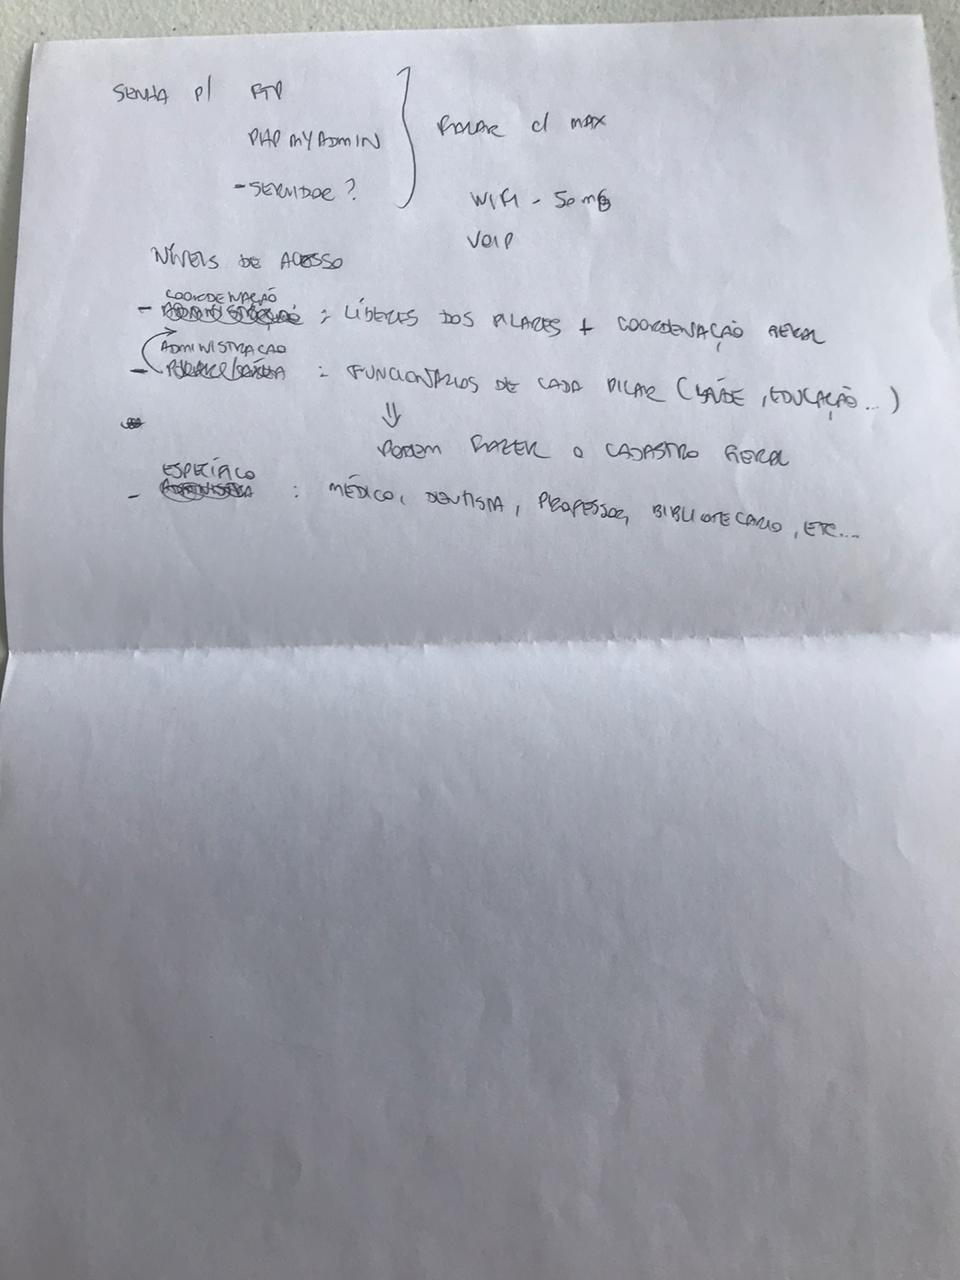 SENHA P/ FTP
PHPMYADMIN
- SERVIDOR ?
FALAR C/ MAX
WIFI - 50 MB
VOIP
NÍVEIS DE ACESSO
COORDENAÇÃO
- : LÍDERES DOS PILARES + COORDENAÇÃO GERAL
ADMINISTRACAO
- : FUNCIONÁRIOS DE CADA PILAR (SAÚDE, EDUCAÇÃO...)
⇓
PODEM FAZER O CADASTRO GERAL
ESPECÍFICO
- : MÉDICO, DENTISTA, PROFESSOR, BIBLIOTECARIO, ETC...